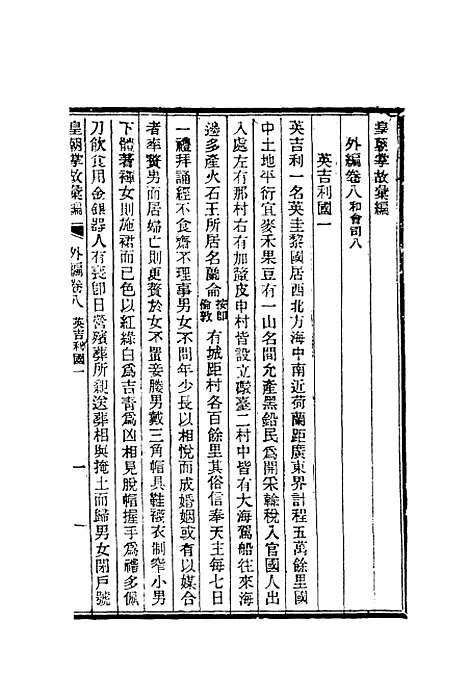 皇朝掌故彙編
外編卷八 和會司八
英吉利國一
英吉利一名英圭黎國居西北方海中南近荷蘭距廣東界計程五萬餘里國
中土地平衍宜麥禾果豆有一山名間允產黑鉛民為開采輸稅入官國人出
入處左有那村右有加釐皮申村皆設立礮臺二村中皆有大海駕船往來海
邊多產火石王所居名蘭侖 按卽倫敦 有城距村各百餘里其俗信奉天主每七日
一禮拜誦經不食齋不理事男女不問年少長以相悅而成婚姻或有以媒合
者率贅男而居婦亡則更贅於女不置妾媵男戴三角帽具鞋襪衣制窄小男
下體著褌女則施裙而已色以紅綠白為吉靑為凶相見脫帽握手為禮多佩
刀飲食用金銀器人有喪卽日營殯葬所親送葬相與掩土而歸男女閉戶號
皇朝掌故彙編 外編卷八 英吉利國一 一